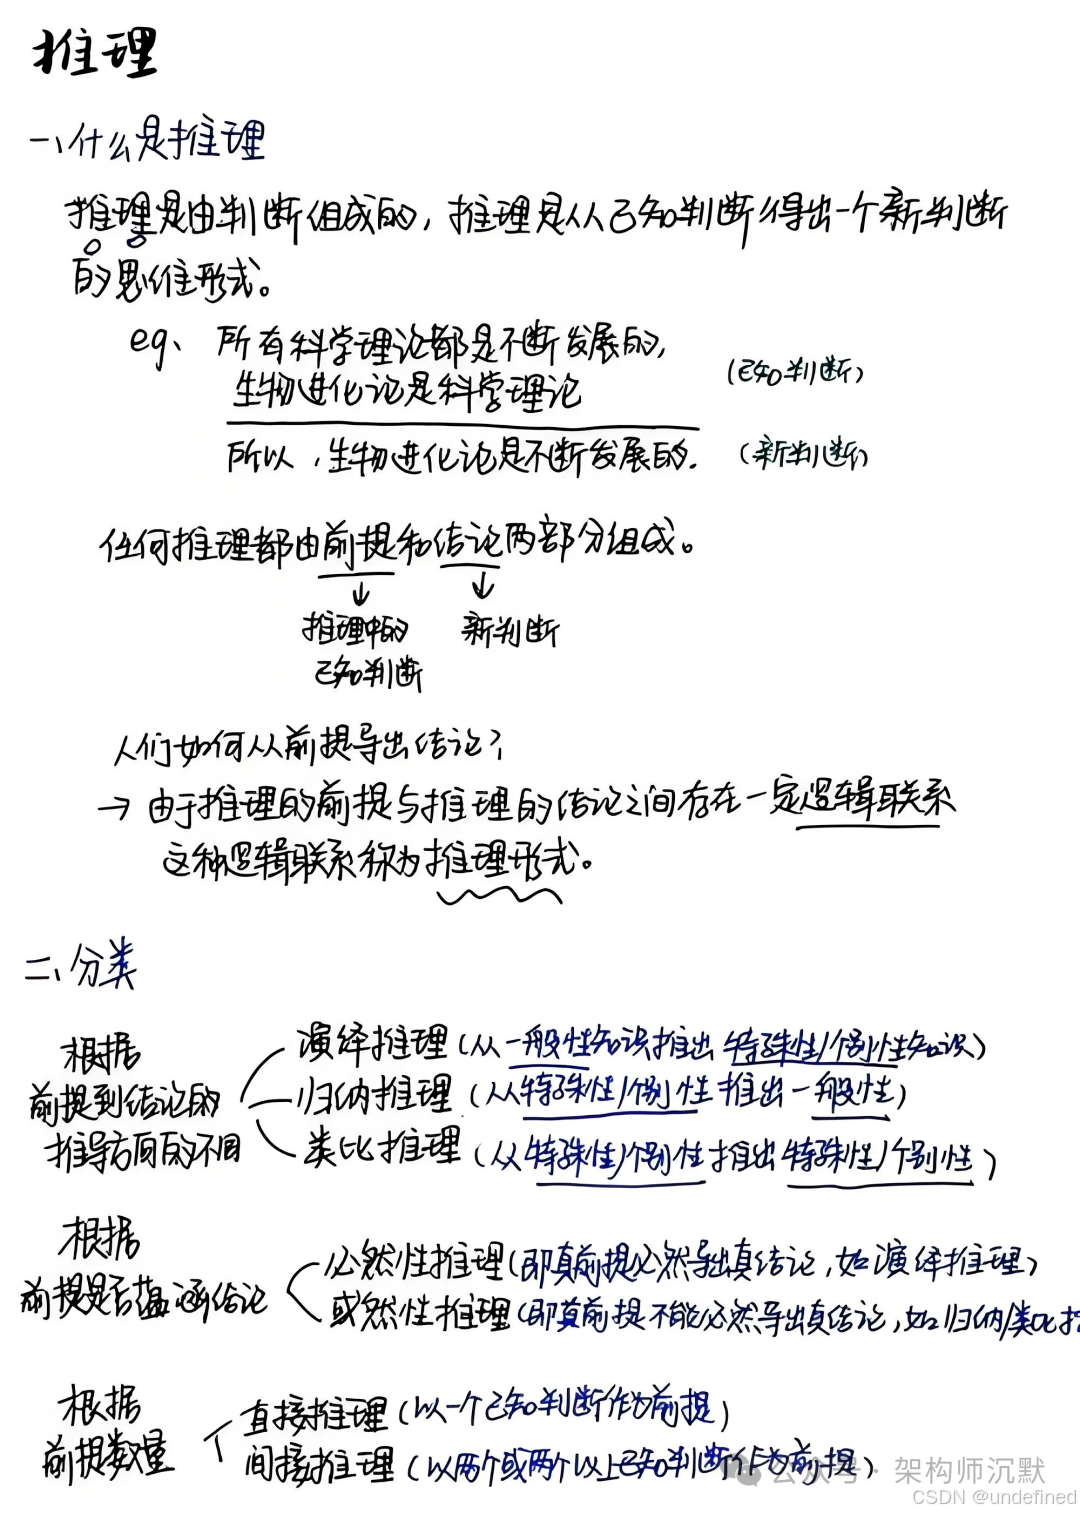 推理
一、什么是推理
推理是由判断组成的，推理是从已知判断得出一个新判断
的思维形式。
eg、所有科学理论都是不断发展的，
生物进化论是科学理论
(已知判断)
所以，生物进化论是不断发展的.
(新判断)
任何推理都由前提和结论两部分组成。
推理中的
已知判断
新判断
人们如何从前提导出结论？
→ 由于推理的前提与推理的结论之间存在一定逻辑联系
这种逻辑联系称为推理形式。
二、分类
根据
前提到结论的
推导方向的不同
演绎推理(从一般性知识推出特殊性/个别性知识)
归纳推理(从特殊性/个别性推出一般性)
类比推理(从特殊性/个别性推出特殊性/个别性)
根据
前提是否蕴涵结论
必然性推理(即真前提必然导出真结论,如演绎推理)
或然性推理(即真前提不能必然导出真结论,如归纳/类比推
根据
前提数量
直接推理(以一个已知判断作为前提)
间接推理(以两个或两个以上已知判断作为前提)
公众号·架构师沉默
CSDN @undefined